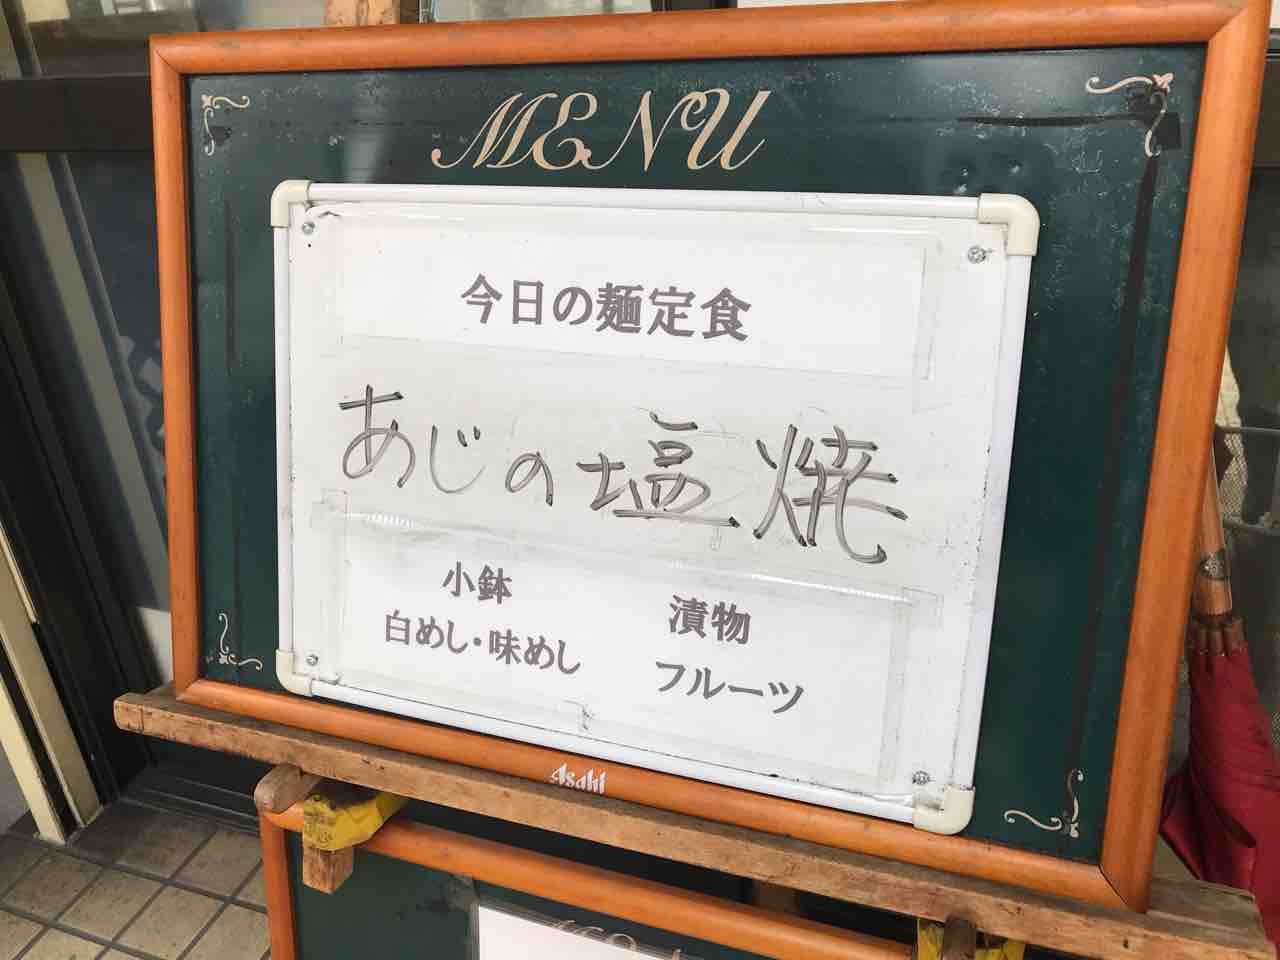 MENU
今日の麺定食
あじの塩焼
小鉢
漬物
白めし・味めし
フルーツ
Asahi